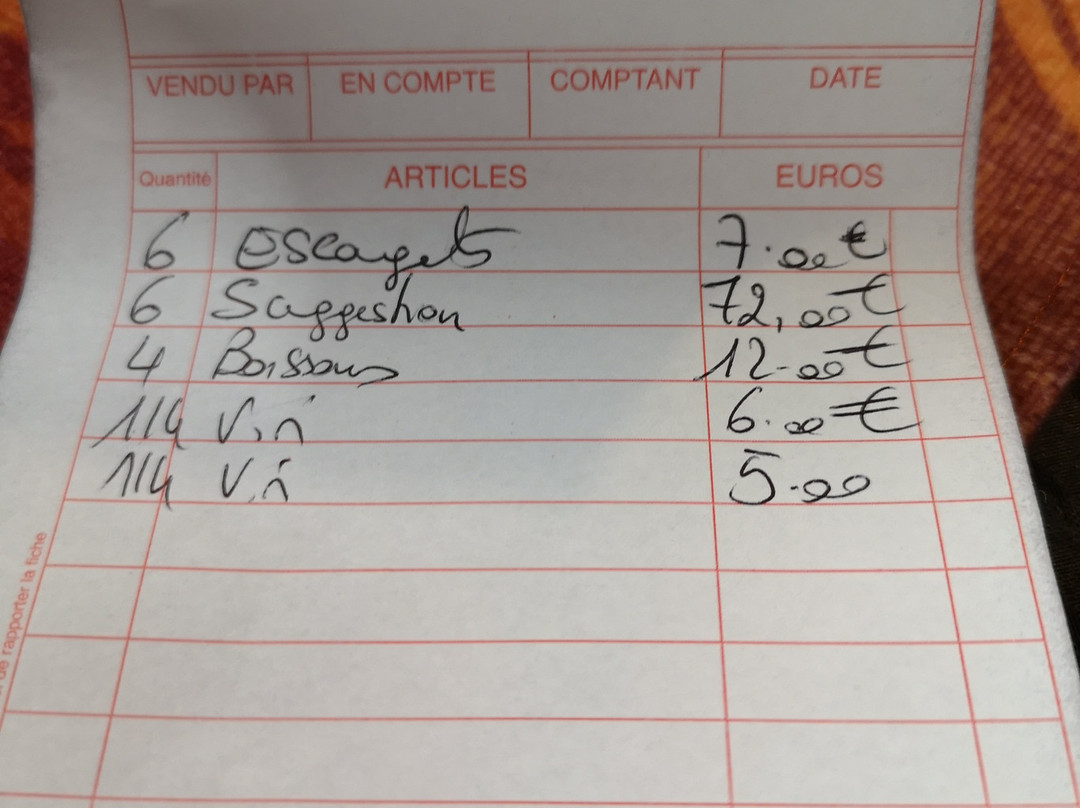 VENDU PAR EN COMPTE COMPTANT DATE
Quantité ARTICLES EUROS
6 escargots 7.00€
6 Suggestion 72,00€
4 Boissons 12.00€
1/4 Vin 6.00€
1/4 Vin 5.00
de rapporter la fiche